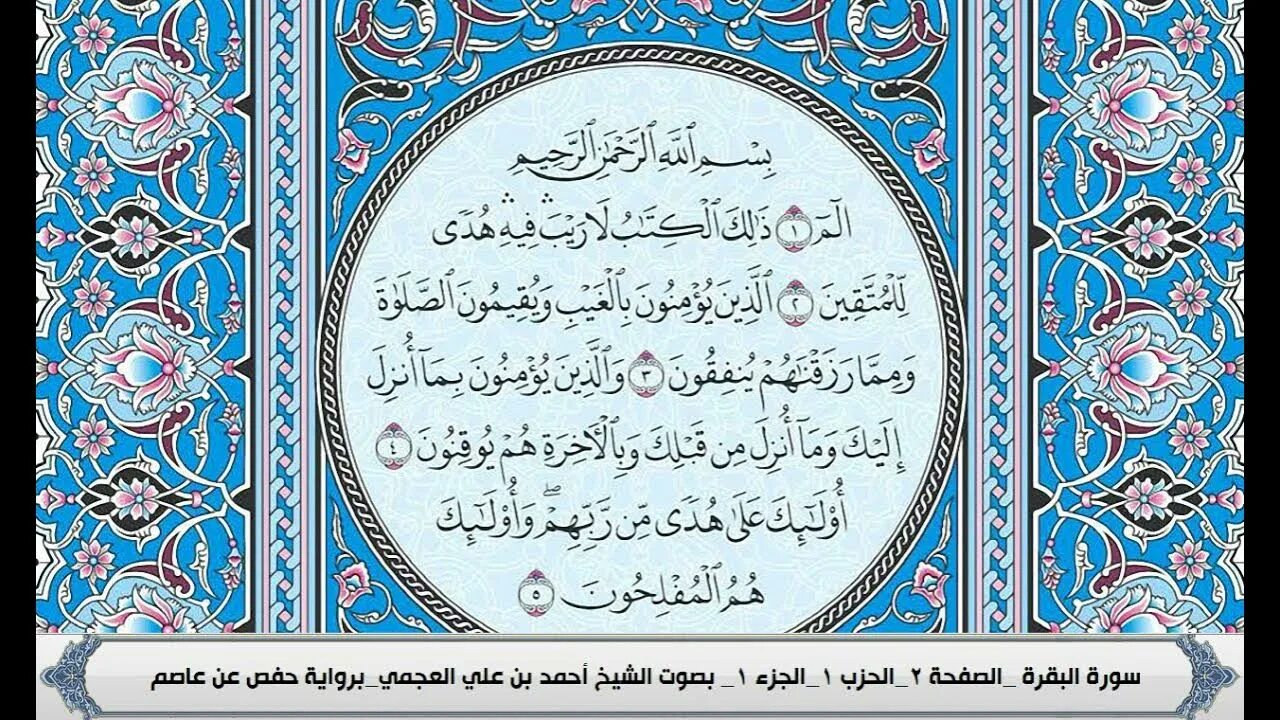 بِسْمِ ٱللَّهِ ٱلرَّحْمَٰنِ ٱلرَّحِيمِ
الٓمٓ ١ ذَٰلِكَ ٱلْكِتَٰبُ لَا رَيْبَۛ فِيهِۛ هُدًى
لِّلْمُتَّقِينَ ٢ ٱلَّذِينَ يُؤْمِنُونَ بِٱلْغَيْبِ وَيُقِيمُونَ ٱلصَّلَوٰةَ
وَمِمَّا رَزَقْنَٰهُمْ يُنفِقُونَ ٣ وَٱلَّذِينَ يُؤْمِنُونَ بِمَآ أُنزِلَ
إِلَيْكَ وَمَآ أُنزِلَ مِن قَبْلِكَ وَبِٱلْءَاخِرَةِ هُمْ يُوقِنُونَ ٤
أُو۟لَٰٓئِكَ عَلَىٰ هُدًى مِّن رَّبِّهِمْۖ وَأُو۟لَٰٓئِكَ
هُمُ ٱلْمُفْلِحُونَ ٥
سورة البقرة _الصفحة ٢_الحزب ١_الجزء ١_ بصوت الشيخ أحمد بن علي العجمي_برواية حفص عن عاصم